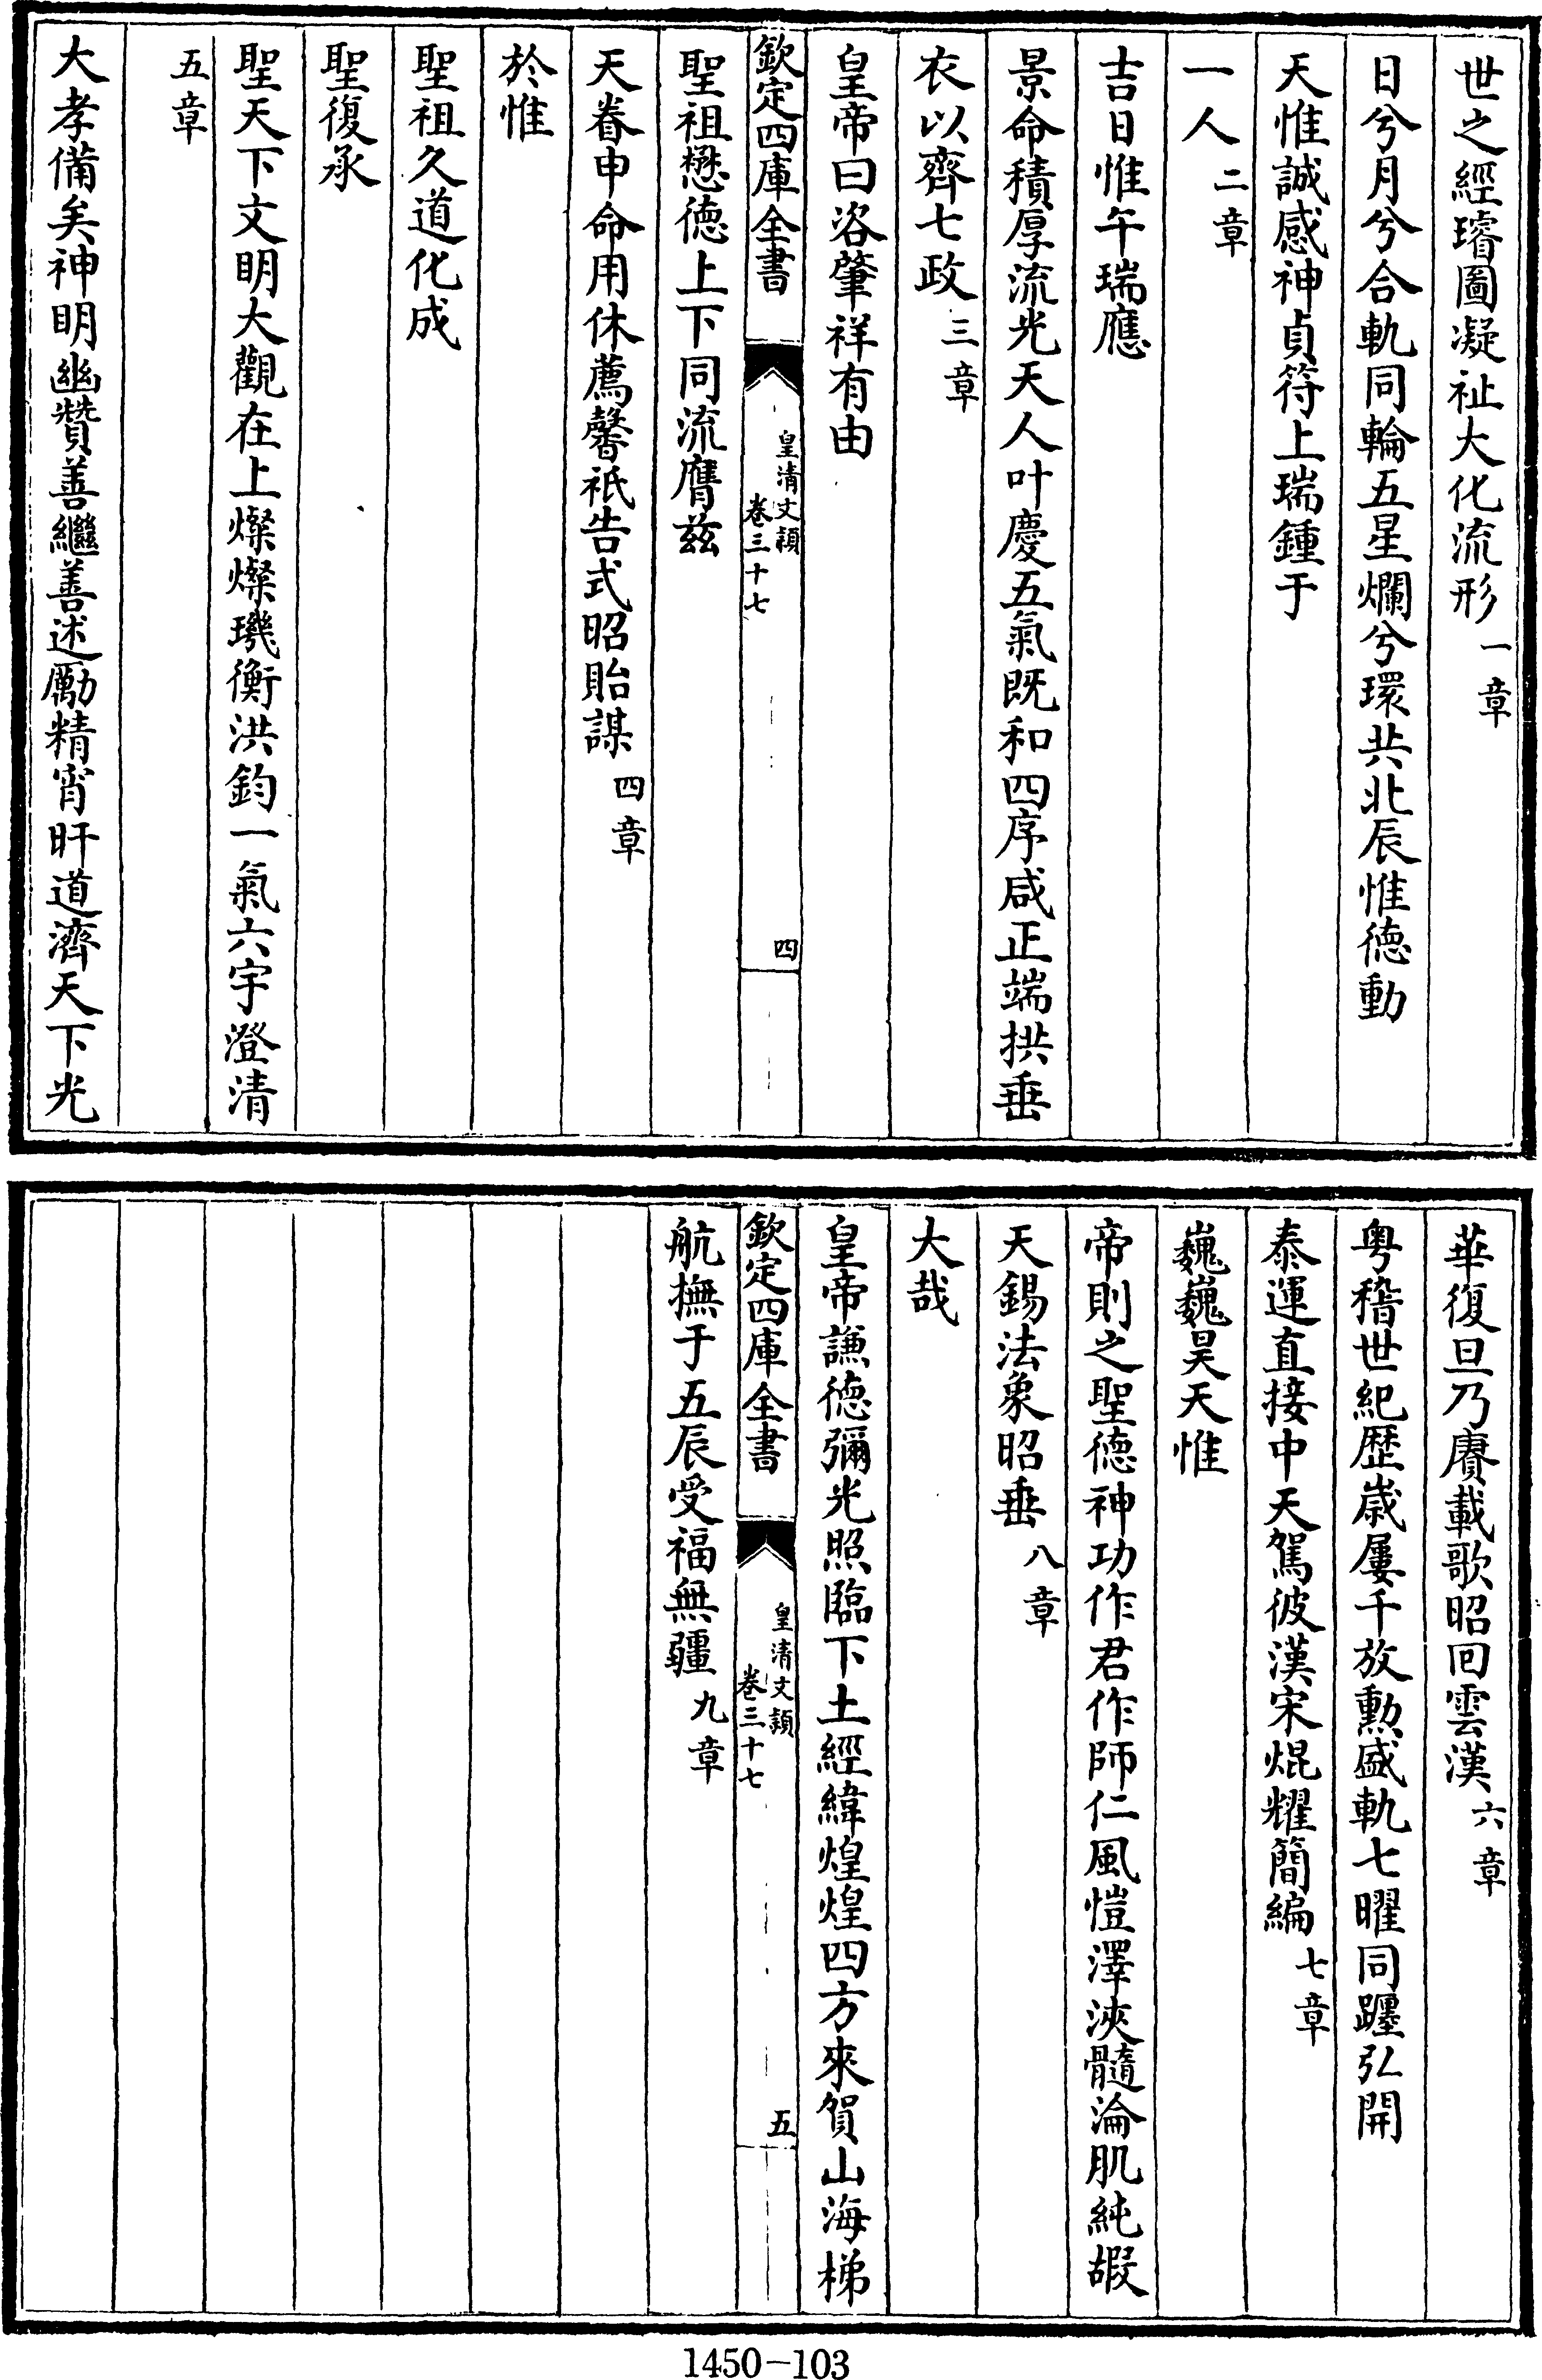 世之經璿圖凝祉大化流形一章
日兮月兮合軌同輪五星爛兮環共北辰惟徳動
天惟誠感神貞符上瑞鍾于
一人二章
吉日惟午瑞應
景命積厚流光天人叶慶五氣既和四序咸正端拱垂
衣以齊七政三章
皇帝曰洛肇祥有由
欽定四庫全書
皇清文穎
卷三十七
四
聖祖懋徳上下同流膺兹
天眷申命用休薦馨祇告式昭貽謀四章
於惟
聖祖久道化成
聖復承
聖天下文明大觀在上燦燦璣衡洪鈞一氣六宇澄清
五章
大孝備矣神明幽贊善繼善述勵精宵旰道濟天下光
華復旦乃賡載歌昭回雲漢六章
粤稽世紀歴嵗屢千放勲盛軌七曜同躔弘開
泰運直接中天駕彼漢宋焜耀簡編七章
巍巍昊天惟
帝則之聖徳神功作君作師仁風愷澤浹髓淪肌純嘏
天錫法象昭垂八章
大哉
皇帝謙徳彌光照臨下土經緯煌煌四方來賀山海梯
欽定四庫全書
皇清文穎
卷三十七
五
航撫于五辰受福無疆九章
1450-103